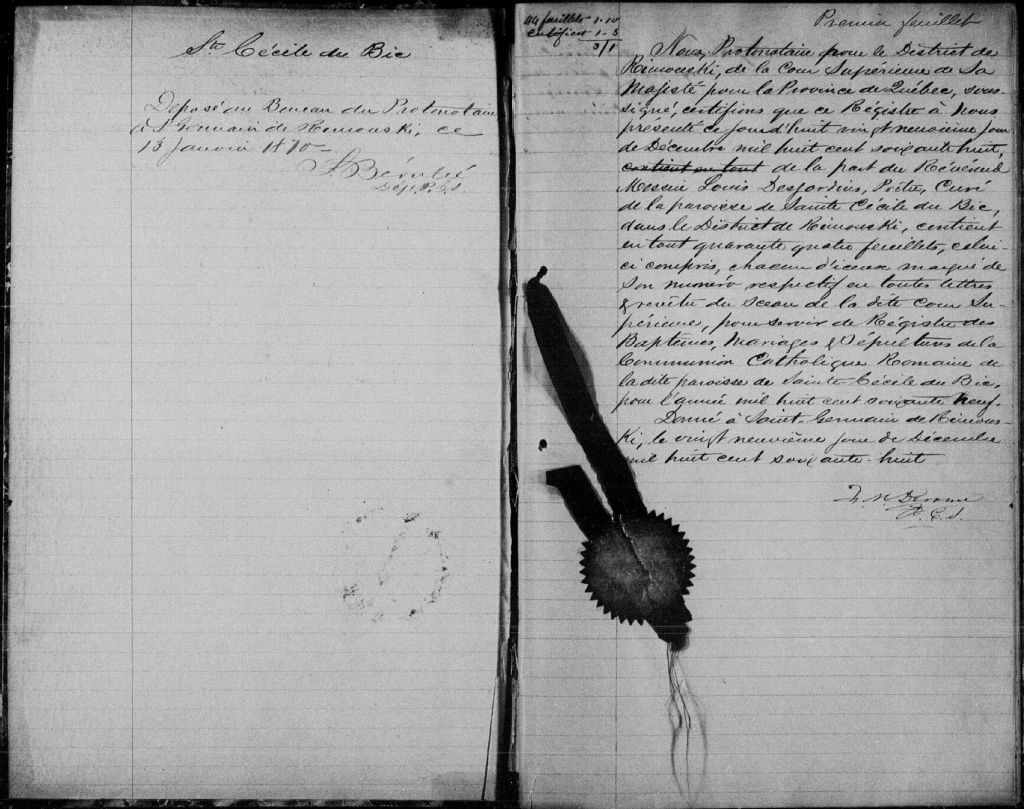 Ste Cécile du Bic
Déposé au Bureau du Protonotaire
à St Germain de Rimouski, ce
13 Janvier 1870
Dép. P.C.S.
44 feuillets 1.10
certificat 1-5
Premier feuillet
Nous, Protonotaire pour le District de
Rimouski, de la Cour Supérieure de Sa
Majesté pour la Province de Québec, sous-
signé, certifions que ce Régistre à Nous
présenté ce jourd'huit vingt neuvième jour
de Décembre mil huit cent soixante huit,
contient en tout de la part du Révérend
Messire Louis Desjardins, Prêtre, Curé
de la paroisse de Sainte Cécile du Bic,
dans le District de Rimouski, contient
en tout quarante quatre feuillets, celui-
ci compris, chacun d'iceux marqué de
son numéro respectif en toutes lettres
& revêtu du sceau de la dite Cour Su-
périeure, pour servir de Régistre des
Baptêmes, Mariages & Sépultures de la
Communion Catholique Romaine de
la dite paroisse de Sainte Cécile du Bic,
pour l'année mil huit cent soixante neuf.
Donné à Saint Germain de Rimous-
ki, le vingt neuvième jour de Décembre
mil huit cent soixante-huit
P.C.S.